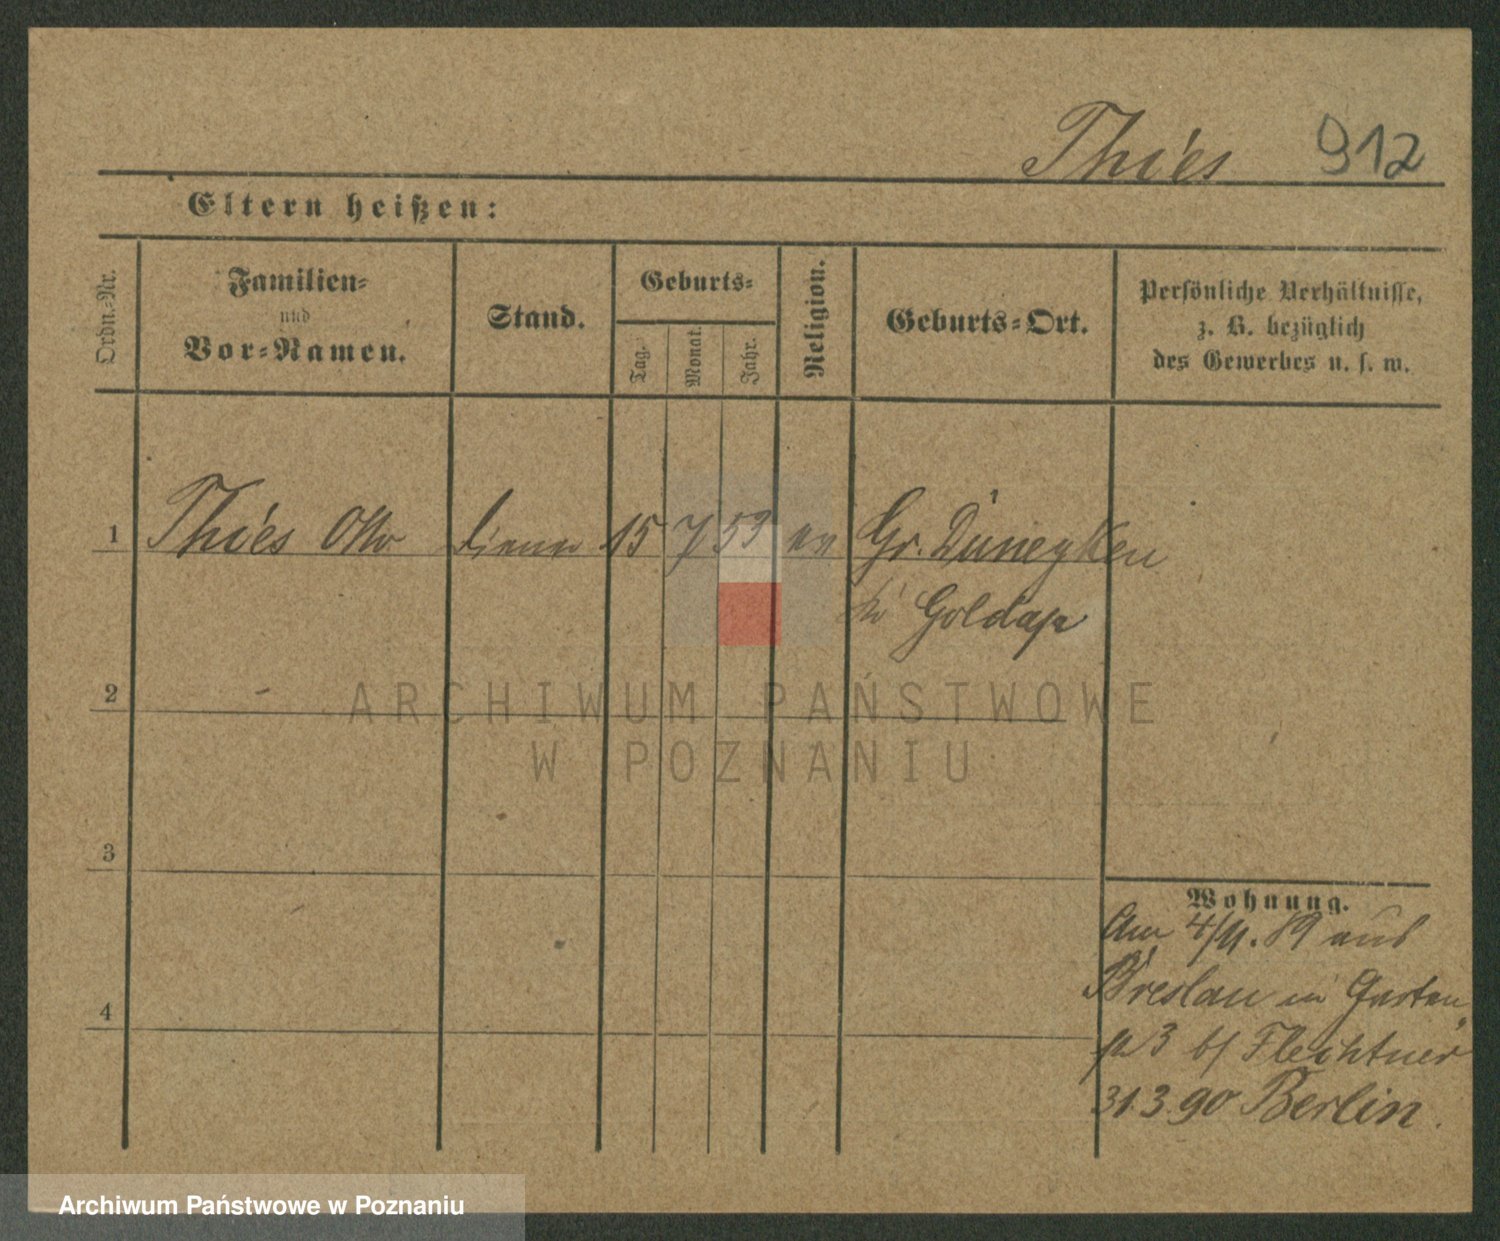 Thies 912
Eltern heißen:
Ordn.-Nr.
Familien-
und
Vor-Namen.
Stand.
Geburts-
Tag.
Monat.
Jahr.
Religion.
Geburts-Ort.
Persönliche Verhältnisse,
z. B. bezüglich
des Gewerbes u. s. w.
1 Thies Otto Diener 15 7 53 ev Gr. Duneyken
Kr Goldap
2
ARCHIWUM PAŃSTWOWE
W POZNANIU
3
Wohnung.
Am 4/11. 89 aus
Breslau in Garten
4
3 b/ Flechtner
31.3.90 Berlin.
Archiwum Państwowe w Poznaniu